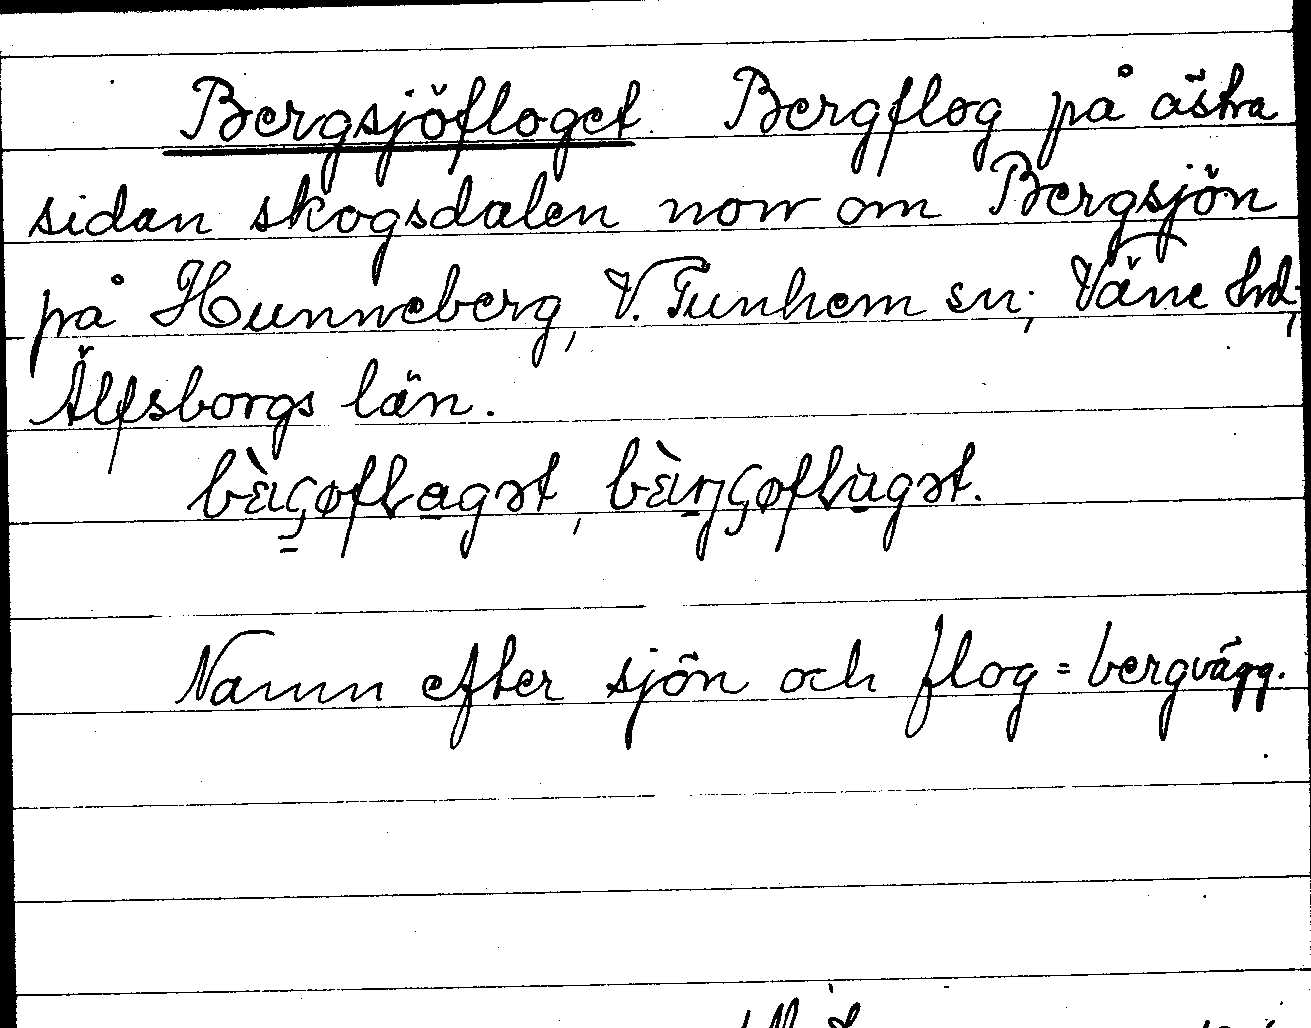 Bergsjöfloget Bergflog på östra
sidan skogsdalen norr om Bergsjön
på Hunneberg, V. Tunhem sn; Väne hd,
Älfsborgs län.
Namn efter sjön och flog = bergvägg.